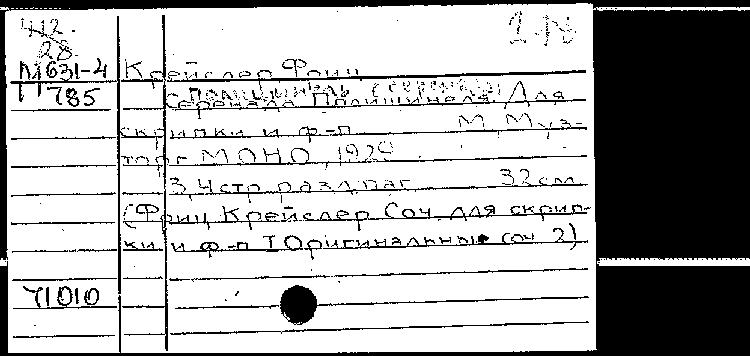 412.
28.
М631-4 Крейслер Фриц
785 Полишинель (серенада)
Серенада Полишинеля. Для
скрипки и ф-п М, Муз-
торг МОНО, 192
3,4 стр. разд. паг. 32 см
(Фриц Крейслер Соч. для скрип-
ки и ф-п I Оригинальные соч 2)
71010